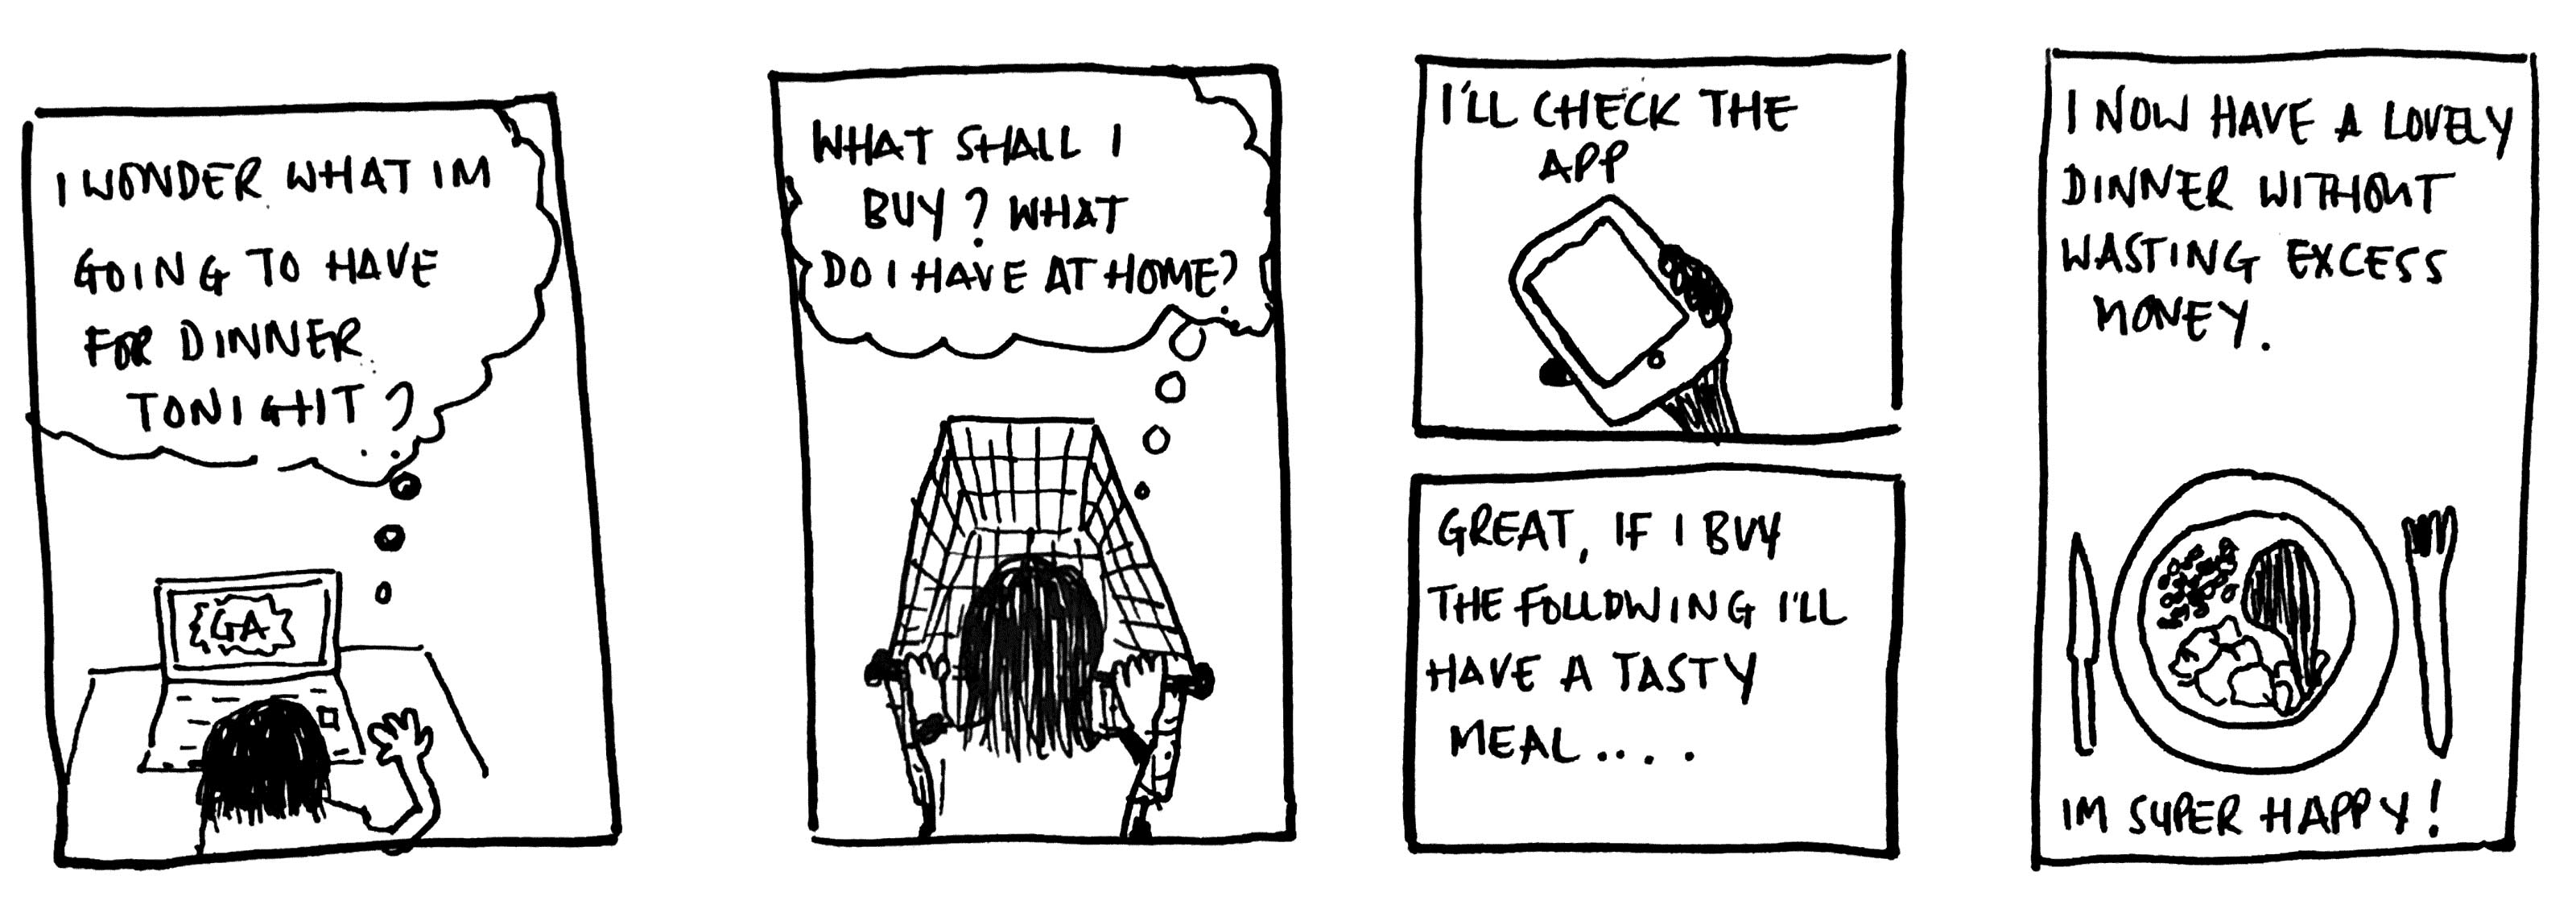 I WONDER WHAT IM
GOING TO HAVE
FOR DINNER
TONIGHT?
GA
WHAT SHALL I
BUY? WHAT
DO I HAVE AT HOME?
I'LL CHECK THE
APP
GREAT, IF I BUY
THE FOLLOWING I'LL
HAVE A TASTY
MEAL....
I NOW HAVE A LOVELY
DINNER WITHOUT
WASTING EXCESS
MONEY.
IM SUPER HAPPY!